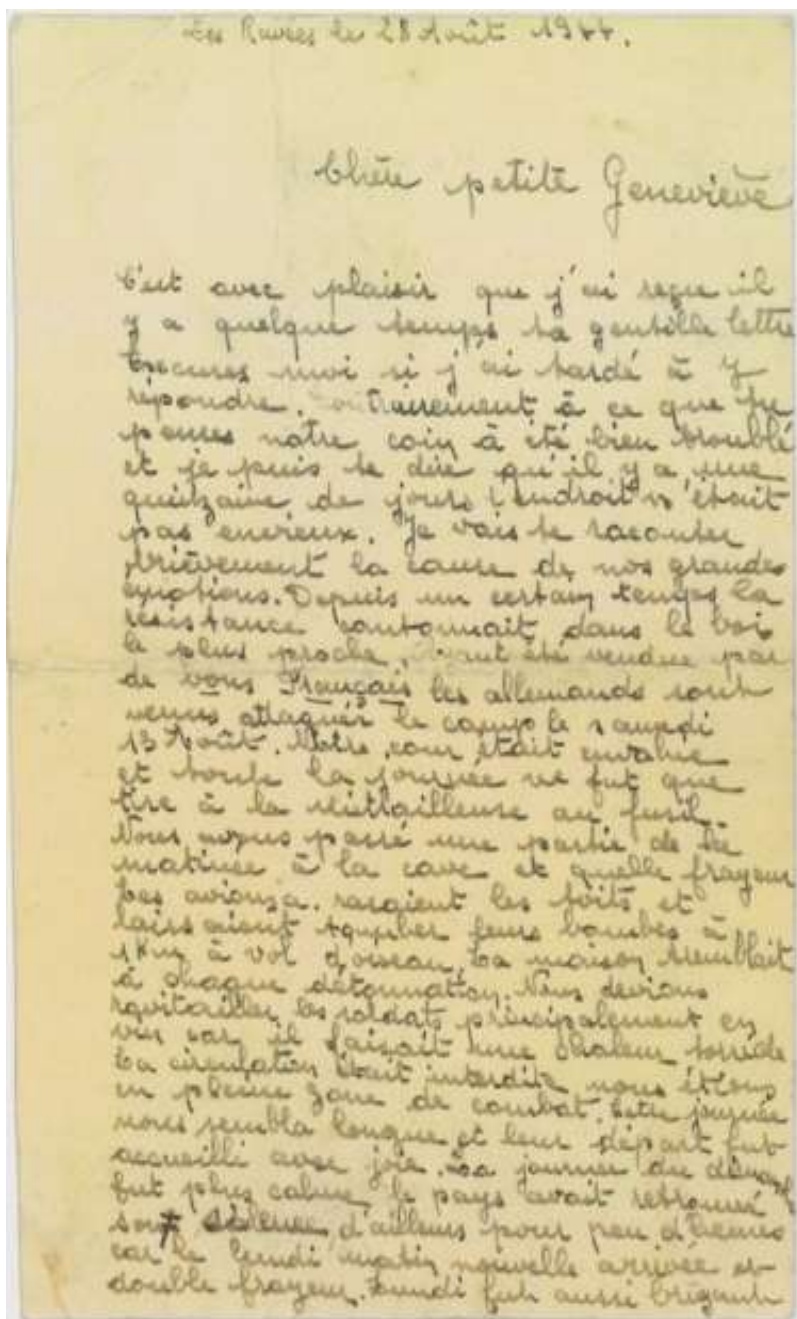 Les Ravées le 28 Août 1944.
Chère petite Geneviève
C'est avec plaisir que j'ai reçue il
y a quelque temps ta gentille lettre
Excuses moi si j'ai tardé à y
répondre. Contrairement à ce que tu
penses notre coin à été bien troublé
et je puis te dire qu'il y a une
quinzaine de jours l'endroit n'était
pas envieux. Je vais te raconter
brièvement la cause de nos grandes
émotions. Depuis un certain temps la
résistance cantonnait dans le bois
le plus proche, ayant été vendue par
de bons Français les allemands sont
venus attaquer le camp le samedi
13 Août. Notre cour était envahie
et toute la journée ce fut que
tire à la mittrailleuse au fusil.
Nous avons passé une partie de la
matinée à la cave et quelle frayeur
Les avions rasaient les toits et
laissaient tomber leurs bombes à
1 Km à vol d'oiseau, la maison tremblait
à chaque détonnation. Nous devions
ravitailler les soldats principalement en
vin car il faisait une chaleur torride
La circulation était interdite nous étions
en pleine zone de combat. Cette journée
nous sembla longue et leur départ fut
accueilli avec joie. La journée du dimanche
fut plus calme, le pays avait retrouvé
son silence d'ailleurs pour peu d'heures
car le lundi matin nouvelle arrivée et
double frayeur. Lundi fut aussi